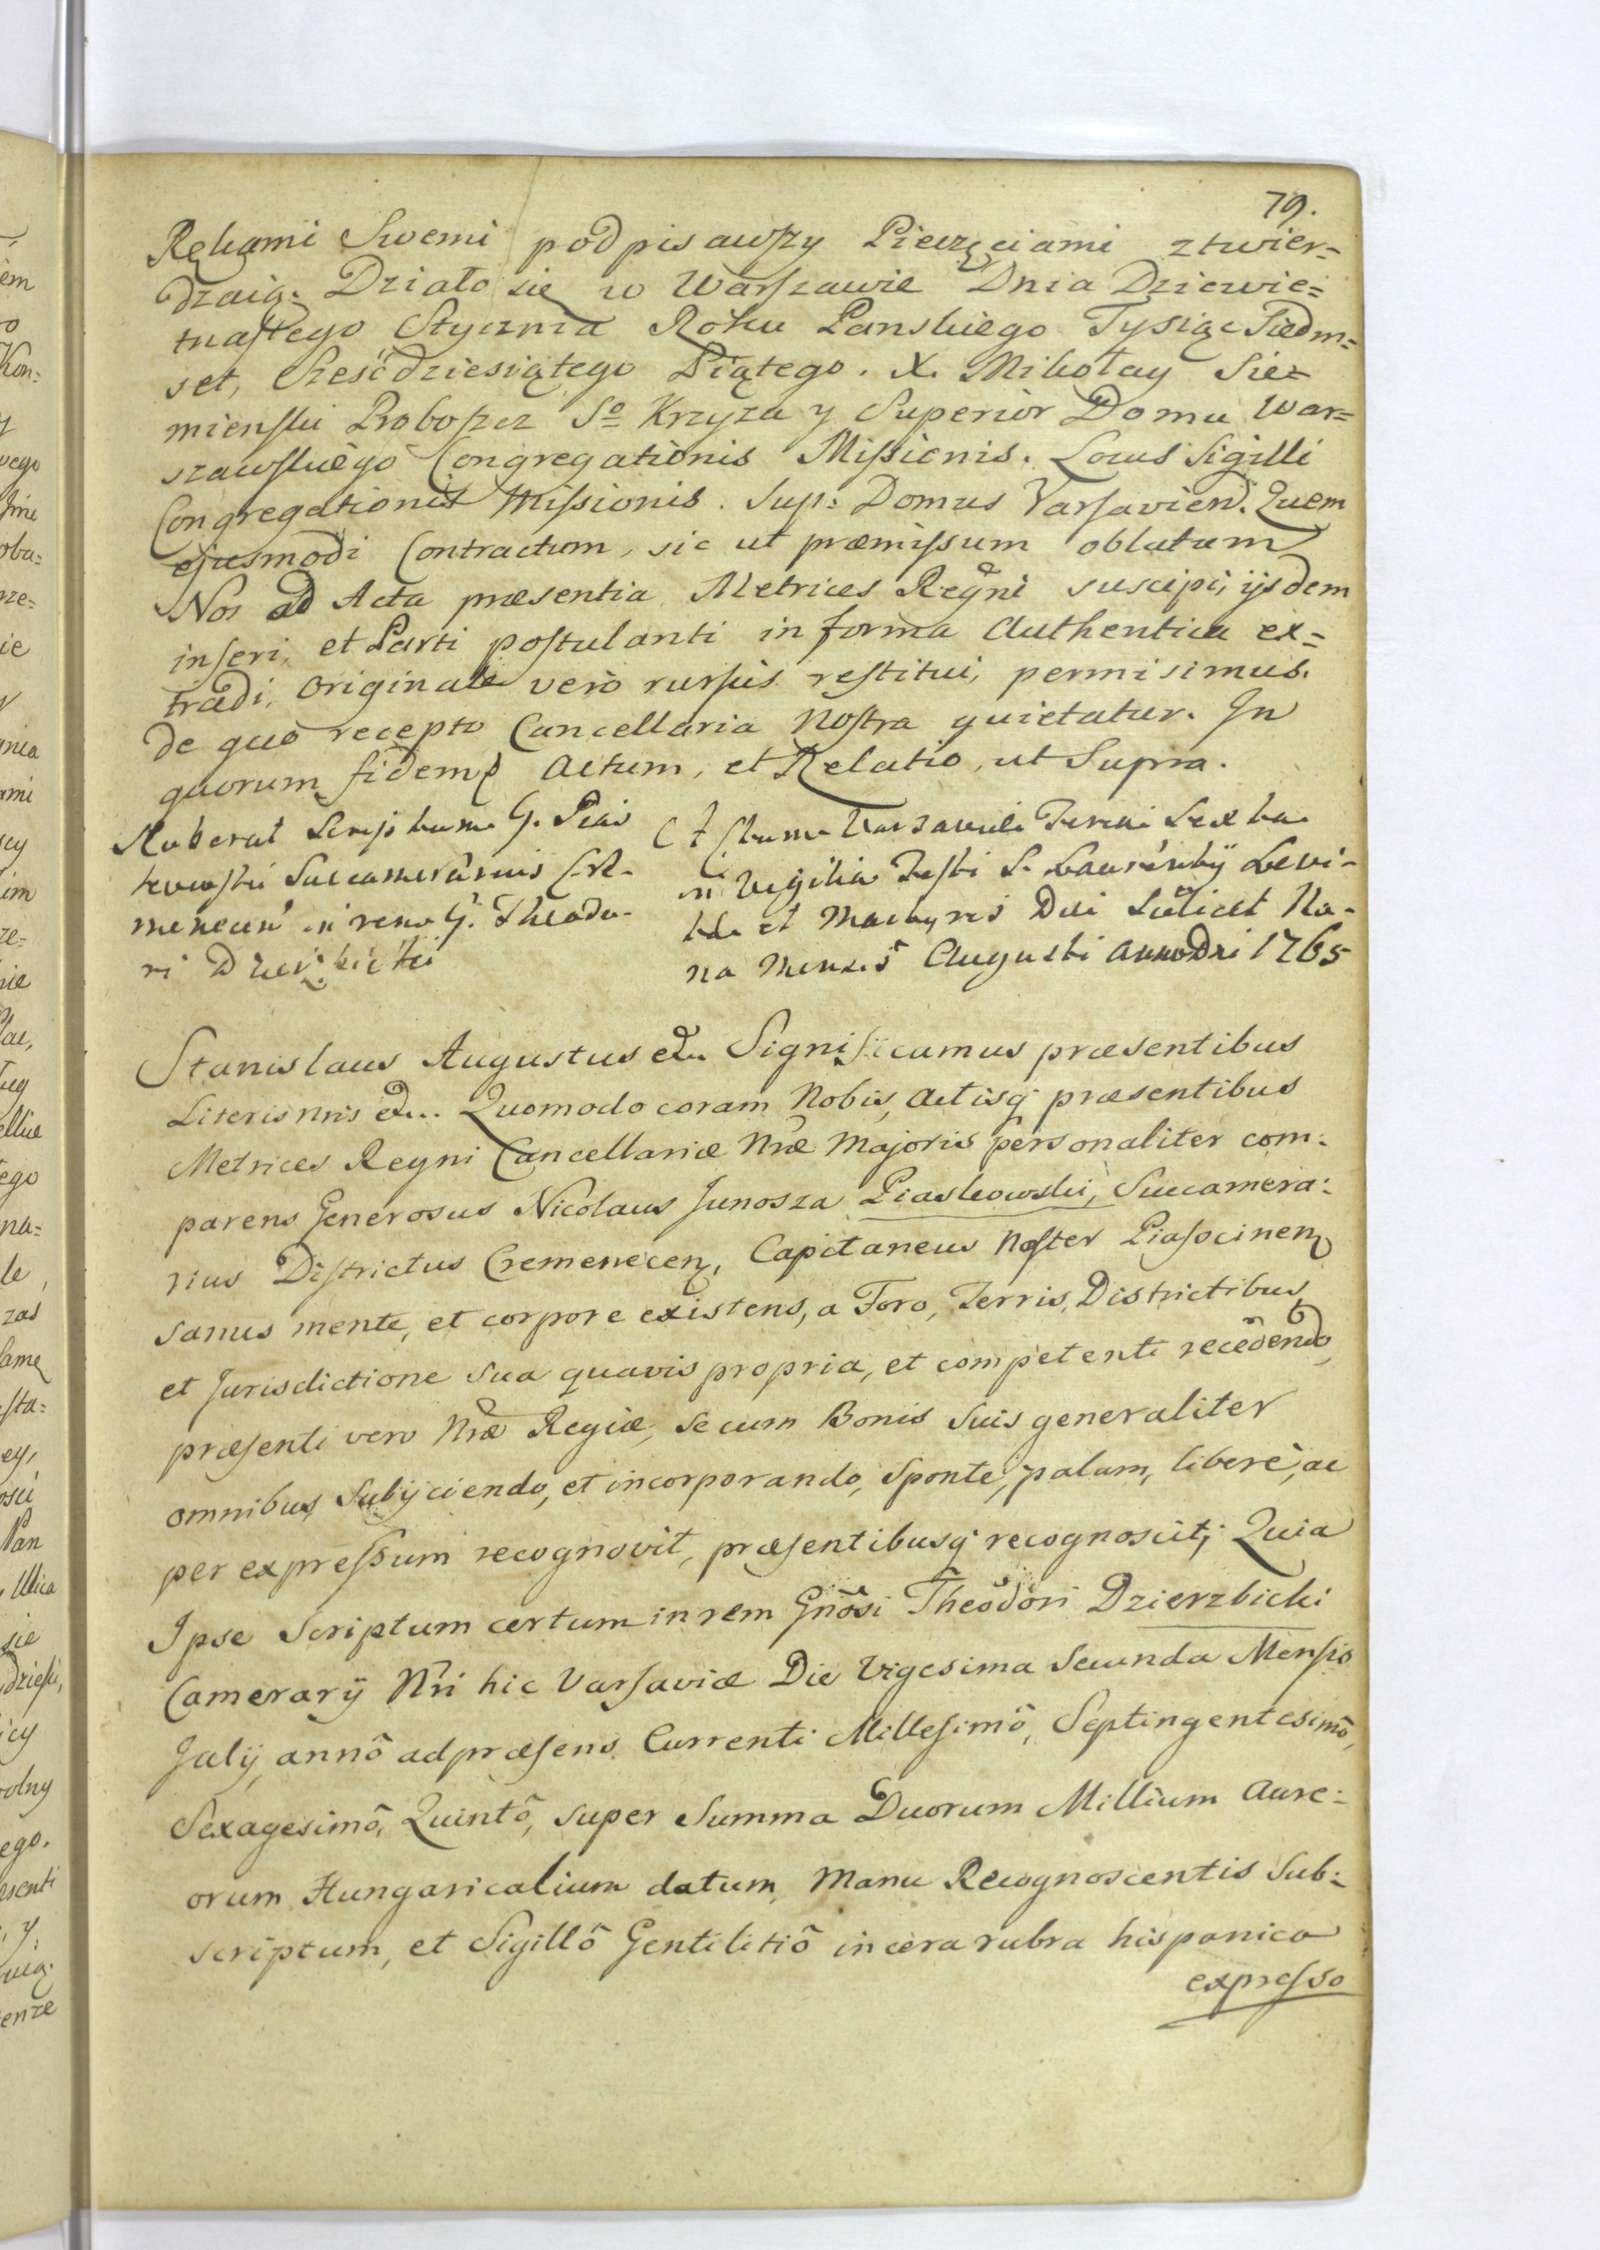 79.
Rękami Swemi podpisawszy Pieczęciami ztwier=
dzaią. Działo się w Warszawie Dnia Dziewie=
tnastego Stycznia Roku Panskiego Tysiąc Siedm=
set, Szescdziesiątego Piątego. X. Mikołay Sie=
mienski Proboszcz So Krzyza y Superior Domu War=
szawskiego Congregationis Missionis. Locus Sigilli
Congregationis Missionis. Sup: Domus Varsavien. Quem
ejusmodi Contractum, sic ut præmissum oblatum
Nos ad Acta præsentia Metrices Regni suscipi, ijsdem
inseri, et Parti postulanti in forma Authentica ex=
tradi, Originale vero rursus restitui, permisimus.
de quo recepto Cancellaria Nostra quietatur. In
quorum fidem Actum, et Relatio, ut Supra.
Roborat Scriptum G. Pias
kowski Succamerarius Cre-
menecen in rem G. Theodo-
ri Dzierzbicki
Actum Varsaviæ Feria Sexta
in Vigilia Festi S. Laurentij Levi-
tæ et Martyris Die Scilicet No-
na Mensis Augusti Anno Dni 1765
Stanislaus Augustus etc Significamus præsentibus
Literis nris etc.. Quomodo coram Nobis, Actisq præsentibus
Metrices Regni Cancellariæ Nræ Majoris personaliter com:
parens Generosus Nicolaus Junosza Piaskowski, Succamera:
rius Districtus Cremenecen, Capitaneus Noster Piasocinen
sanus mente, et corpore existens, a Foro, Terris, Districtibus
et Jurisdictione sua quavis propria, et competenti recedendo,
præsenti vero Nræ Regiæ, se cum Bonis suis generaliter
omnibus Subijciendo, et incorporando, Sponte, palam, liberè, ac
per expressum recognovit, præsentibusq recognoscit; Quia
Ipse Scriptum certum in rem Gnosi Theodori Dzierzbicki
Camerarij Nri hic Varsaviæ Die Vigesima Secunda Mensis
Julij, annô ad præsens Currenti Millesimô, Septingentesimô,
Sexagesimô, Quintô, super Summa Duorum Millium Aure:
orum Hungaricalium datum, Manu Recognoscentis Sub:
scriptum, et Sigillô Gentilitiô in cera rubra hispanica
expresso